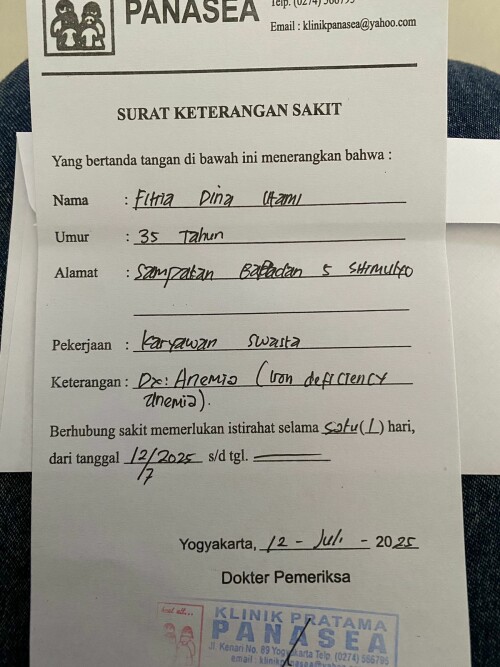 PANASEA
Telp. (0274) 566795
Email : klinikpanasea@yahoo.com
SURAT KETERANGAN SAKIT
Yang bertanda tangan di bawah ini menerangkan bahwa :
Nama : Fitria Dina Utami
Umur : 35 Tahun
Alamat : Sampatan Babadan 5
Pekerjaan : Karyawan Swasta
Keterangan : Dx: Anemia (Iron deficiency
anemia).
Berhubung sakit memerlukan istirahat selama satu (1) hari,
dari tanggal 12/7/2025 s/d tgl.
Yogyakarta, 12 - Juli - 2025
Dokter Pemeriksa
KLINIK PRATAMA
PANASEA
Jl. Kenari No. 89 Yogyakarta Telp. (0274) 566795